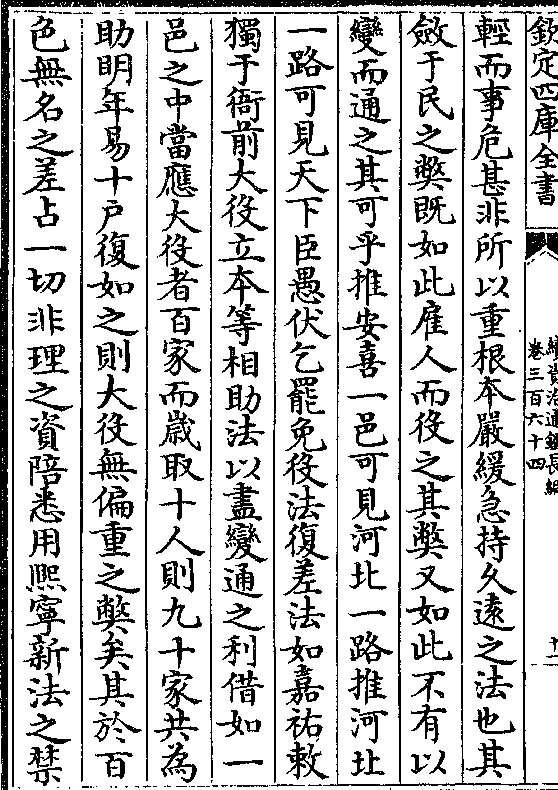 欽定四庫全書
續資治通鑑長編
卷三百六十四
十二
輕而事危甚非所以重根本嚴緩急持久遠之法也其
斂于民之弊既如此雇人而役之其弊又如此不有以
變而通之其可乎推安喜一邑可見河北一路推河北
一路可見天下臣愚伏乞罷免役法復差法如嘉祐敕
獨于衙前大役立本等相助法以盡變通之利借如一
邑之中當應大役者百家而嵗取十人則九十家共為
助明年易十户復如之則大役無偏重之弊矣其於百
色無名之差占一切非理之資陪悉用熈寧新法之禁